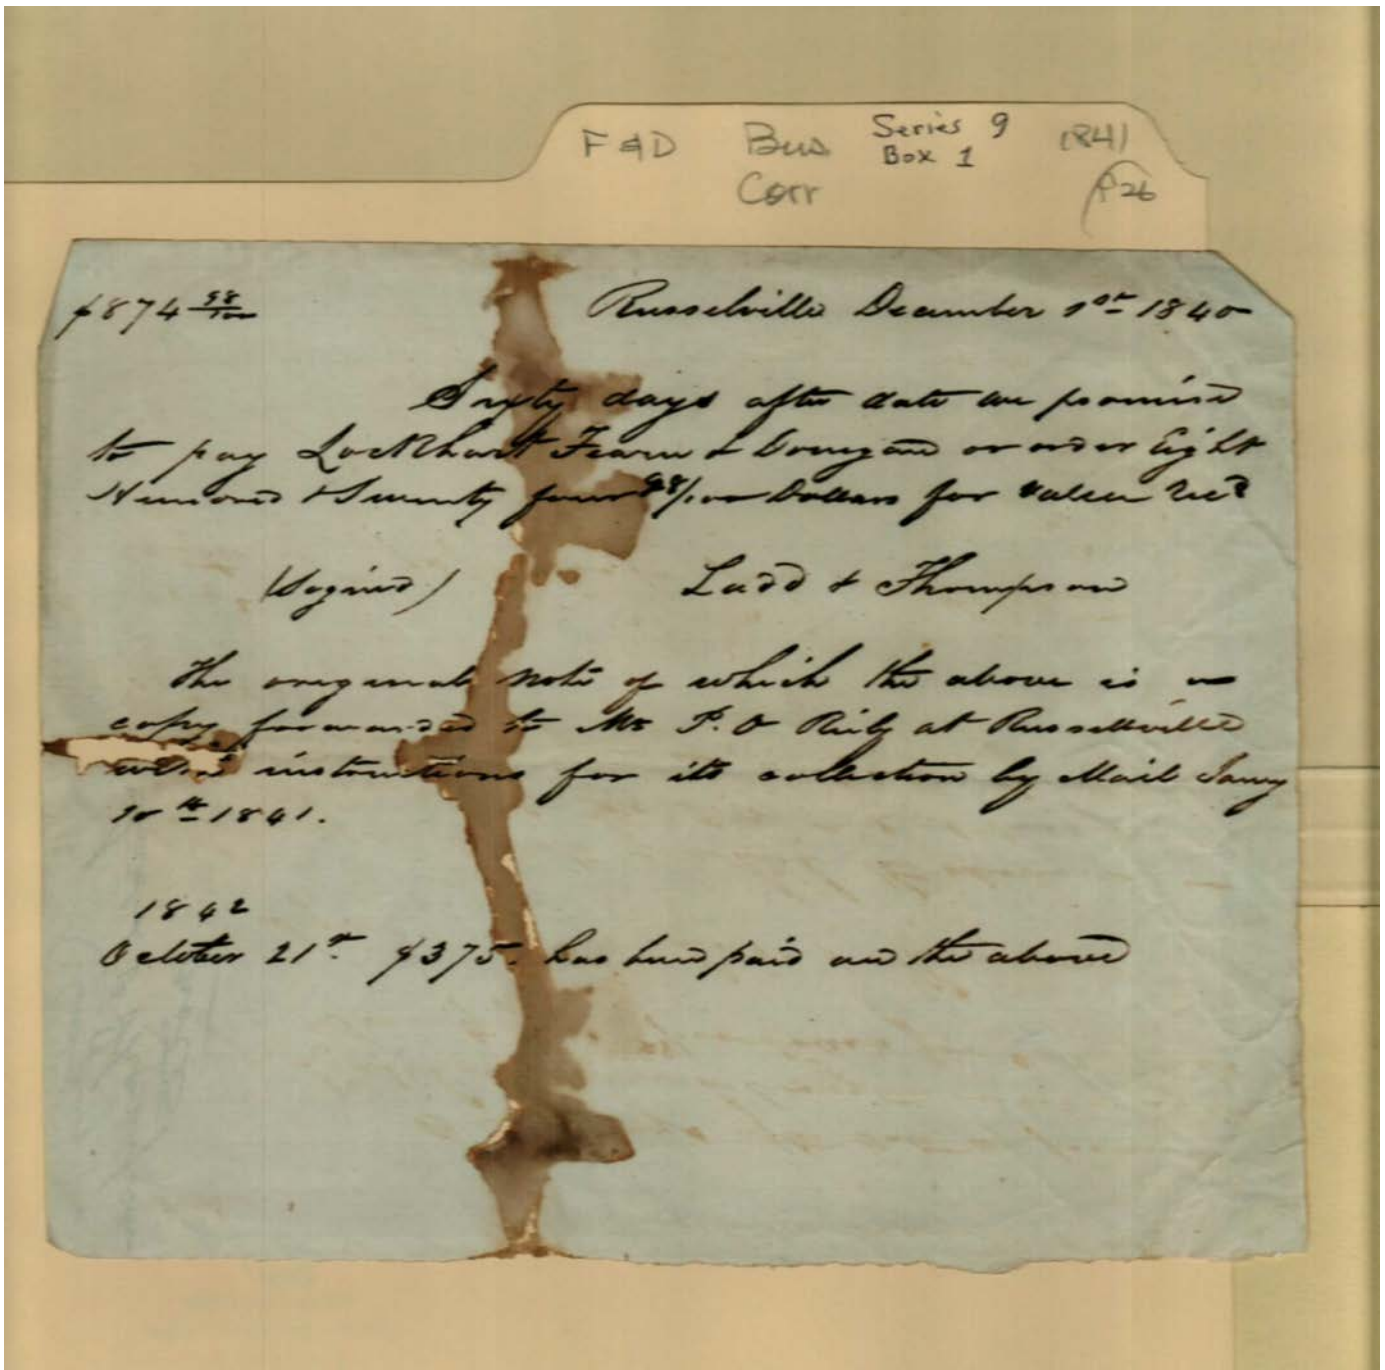 F&D Bus Series 9 1841
Corr Box 1 P26
$874 98/100 Russelville December 1st 1840
Sixty days after date we promise
to pay Lockhart Fearn & Donegan or order Eight
Hundred & Seventy four 98/100 Dollars for value Recd
(Signed) Ladd & Thompson
The original note of which the above is a
copy forwarded to Mr P. O Rily at Russellville
with instructions for its collection by Mail Jany
10th 1841.
1842
October 21st $375. has been paid on the above